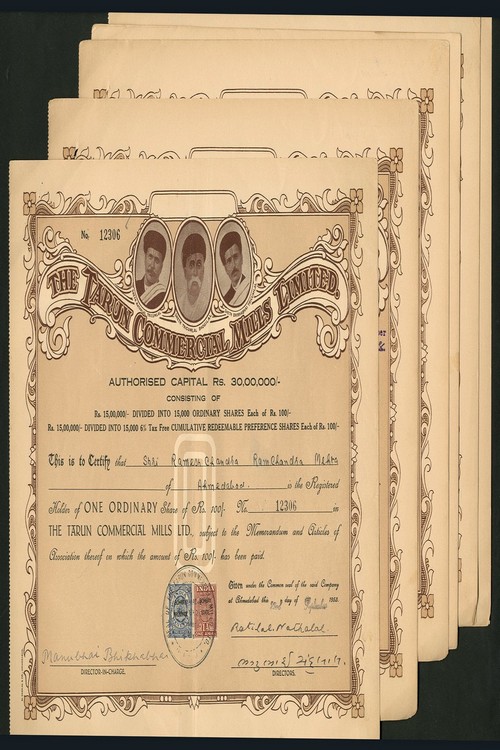 No. 12306
THE TARUN COMMERCIAL MILLS LIMITED.
AUTHORISED CAPITAL Rs. 30,00,000/-
CONSISTING OF
Rs. 15,00,000/- DIVIDED INTO 15,000 ORDINARY SHARES Each of Rs. 100/-
Rs. 15,00,000/- DIVIDED INTO 15,000 6% Tax Free CUMULATIVE REDEEMABLE PREFERENCE SHARES Each of Rs. 100/-
This is to Certify that Shri Ramesh Chandra Ramchandra Mehta
of Ahmedabad. is the Registered
Holder of ONE ORDINARY Share of Rs. 100/- No. 12306 in
THE TARUN COMMERCIAL MILLS LTD., subject to the Memorandum and Articles of
Association thereof in which the amount of Rs. 100/- has been paid.
Given under the Common seal of the said Company
at Ahmedabad this day of September
INDIA
Ratilal Nathalal
Manubhai Bhikhabhai
DIRECTOR-IN-CHARGE.
DIRECTORS.